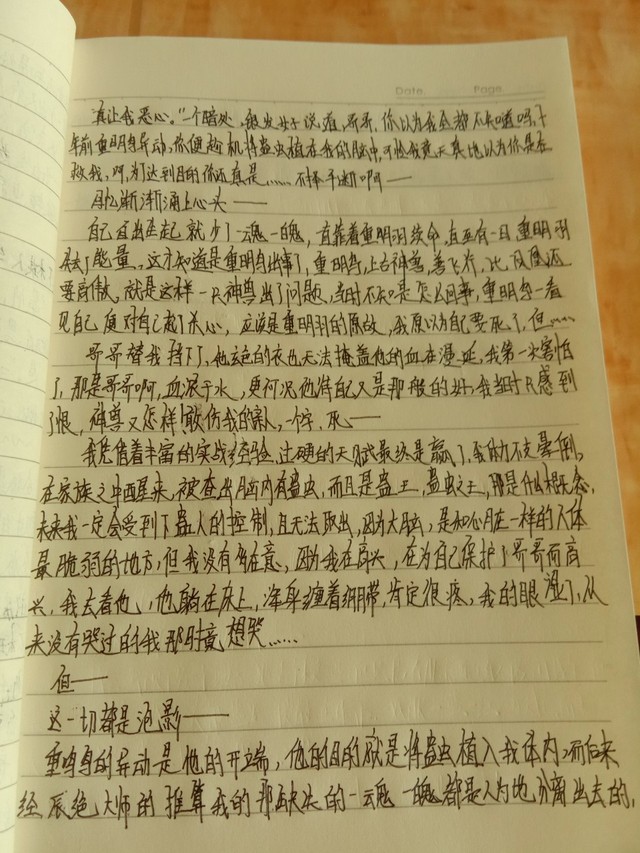 Date. Page
真让我恶心。"一个暗处,银发女子说道,哥哥,你以为我全都不知道吗,十
年前重明鸟异动,你便趁机将蛊虫植在我的脑中,可怜我竟天真地以为你是在
救我,呵,为了达到目的你还真是……不择手断啊——
回忆渐渐涌上心头——
自己生出生起就少了一魂一魄,直靠着重明羽续命,直至有一日重明羽
失去了能量,这才知道是重明鸟出事了,重明鸟,上古神兽,善飞行,比凤凰还
要高傲,就是这样一只神兽出了问题,当时不知是怎么回事,重明鸟一看
见自己便对自己起了杀心,应该是重明羽的原故,我原以为自己要死了,但……
哥哥替我挡下了,他玄色的衣也无法掩盖他的血在漫延,我第一次害怕
了,那是哥哥啊,血浓于水,更何况他待自己又是那般的好,我当时只感到
了恨,神兽又怎样!敢伤我的亲人,一个字,死——
我凭借着丰富的实战经验,过硬的天赋最终是赢了,我体力不支晕倒,
在家族之中醒来,被查出脑内有蛊虫,而且是蛊王,蛊虫之王,那是什么概念,
未来我一定会受到下蛊人的控制,且无法取出,因为大脑,是和心脏在一样的人体
最脆弱的地方,但我没有多在意,因为我在高兴,在为自己保护了哥哥而高
兴,我去看他,他躺在床上,浑身缠着绷带,肯定很疼,我的眼湿了,从
来没有哭过的我那时竟想哭……
但——
这一切都是泡影——
重明鸟的异动是他的开端,他的目的就是将蛊虫植入我体内,而后来
经辰绝大师的推算我的那缺失的一魂一魄都是人为地分离出去的,